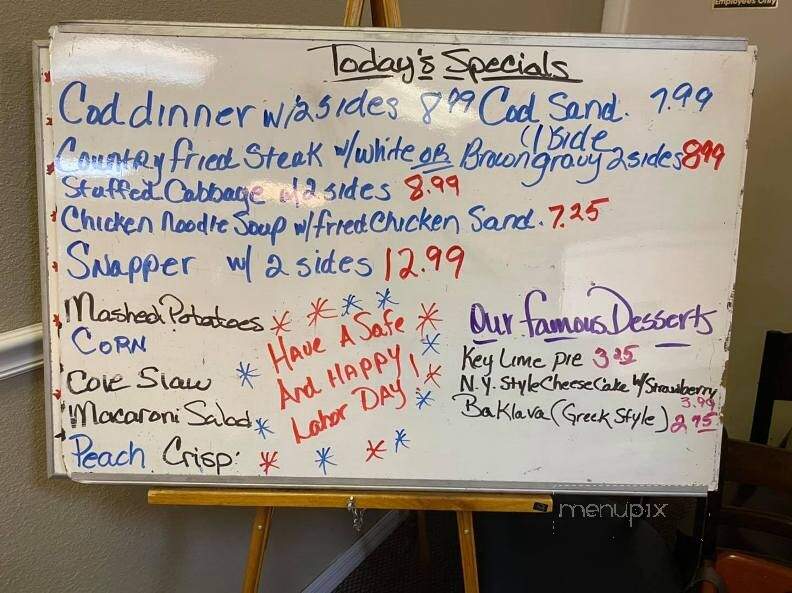 Employees Only
Today's Specials
Cod dinner w/2 sides 8.99 Cod Sand. 7.99
(1 side
Country fried Steak w/white OR Brown gravy 2 sides 8.99
Stuffed Cabbage w/2 sides 8.99
Chicken Noodle Soup w/fried Chicken Sand. 7.25
Snapper w/ 2 sides 12.99
Mashed Potatoes
CORN
Cole Slaw
Macaroni Salad
Peach Crisp:
Have A Safe
And HAPPY!
Labor DAY!
Our famous Desserts
Key Lime Pie 3.25
N.Y. Style Cheese Cake w/Strawberry
3.99
Baklava (Greek Style) 2.75
menupix